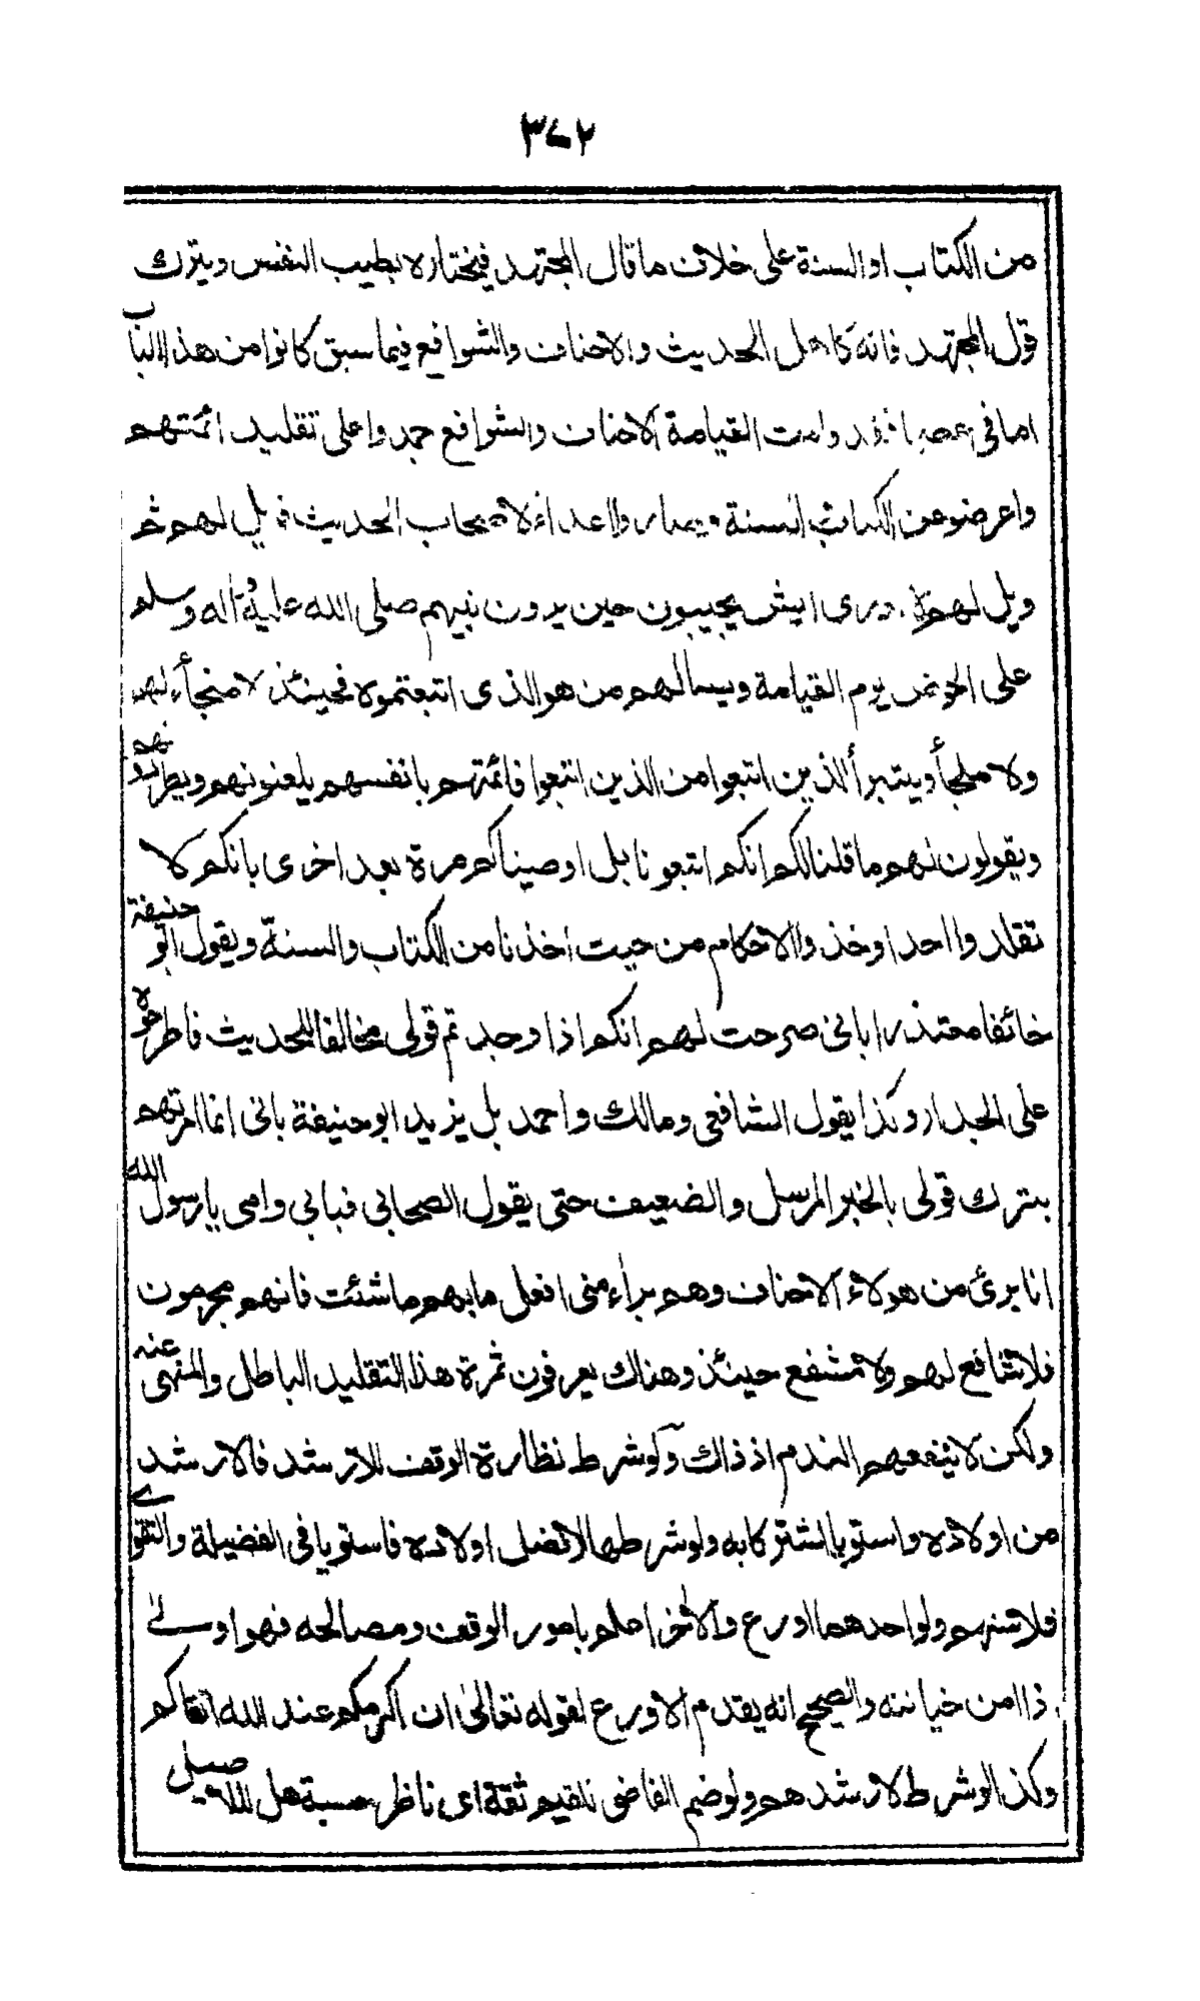 ٣٤٢
من الكتاب او السنة على خلاف ما قال المجتهد فيختاره بطيب النفس ويترك
قول المجتهد فانه كاهل الحديث والاحناف والشوافع فيما سبق كانوا من هذا الباب
اما في وقامت القيامة الاحناف والشوافع جمدوا على تقليد ائمتهم
واعرضوا عن الكتاب السنة وصاروا اعداء لاصحاب الحديث فويل لهم ثم
ويل لهم ايش يجيبون حين يردون نبيهم صلى الله عليه وآله وسلم
على الحوض يوم القيامة ويسالهم من هو الذى اتبعتموه فحينئذ لا منجأ لهم
ولا ملجأ ويتبرأ الذين اتبعوا من الذين اتبعوا فائمتهم بانفسهم يلعنونهم ويطردونهم
ويقولون لهم ما قلنا لكم انكم اتبعونا بل اوصيناكم مرة بعد اخرى بانكم لا
تقلدوا احدا وخذوا الاحكام من حيث اخذنا من الكتاب والسنة ويقول ابو حنيفة
خائفا معتذرا بانى صرحت لهم انكم اذا وجدتم قولى مخالفا للحديث فاطرحوه
على الجدار وكذا يقول الشافعى ومالك واحمد بل يزيد ابو حنيفة بانى انما امرتهم
بترك قولى بالخبر المرسل والضعيف حتى يقول الصحابى فبابى وامى يا رسول الله
انا برئ من هولاء الاحناف وهم برأء منى افعل ما بهم ما شئت فانهم مجرمون
فلا شافع لهم ولا مشفع حينئذ وهناك يعرفون ثمرة هذا التقليد الباطل والمنهى عنه
ولكن لا ينفعهم الندم اذ ذاك ولو شرط نظارة الوقف للارشد فالارشد
من اولاده واستويا اشتركا به ولو شرطها لافضل اولاده فاستويا فى الفضيلة والتقوے
فلاسنهم ولو احدهما اورع والآخر اعلم بامور الوقف ومصالحه فهو اولے
اذا امن خيانته والصحيح انه يقدم الاورع لقوله تعالى ان اكرمكم عند الله اتقاكم
وكذا لو شرط لارشدهم ولو ضم القاضى للقيم ثقة اى ناظر حسبة هل للاصيل